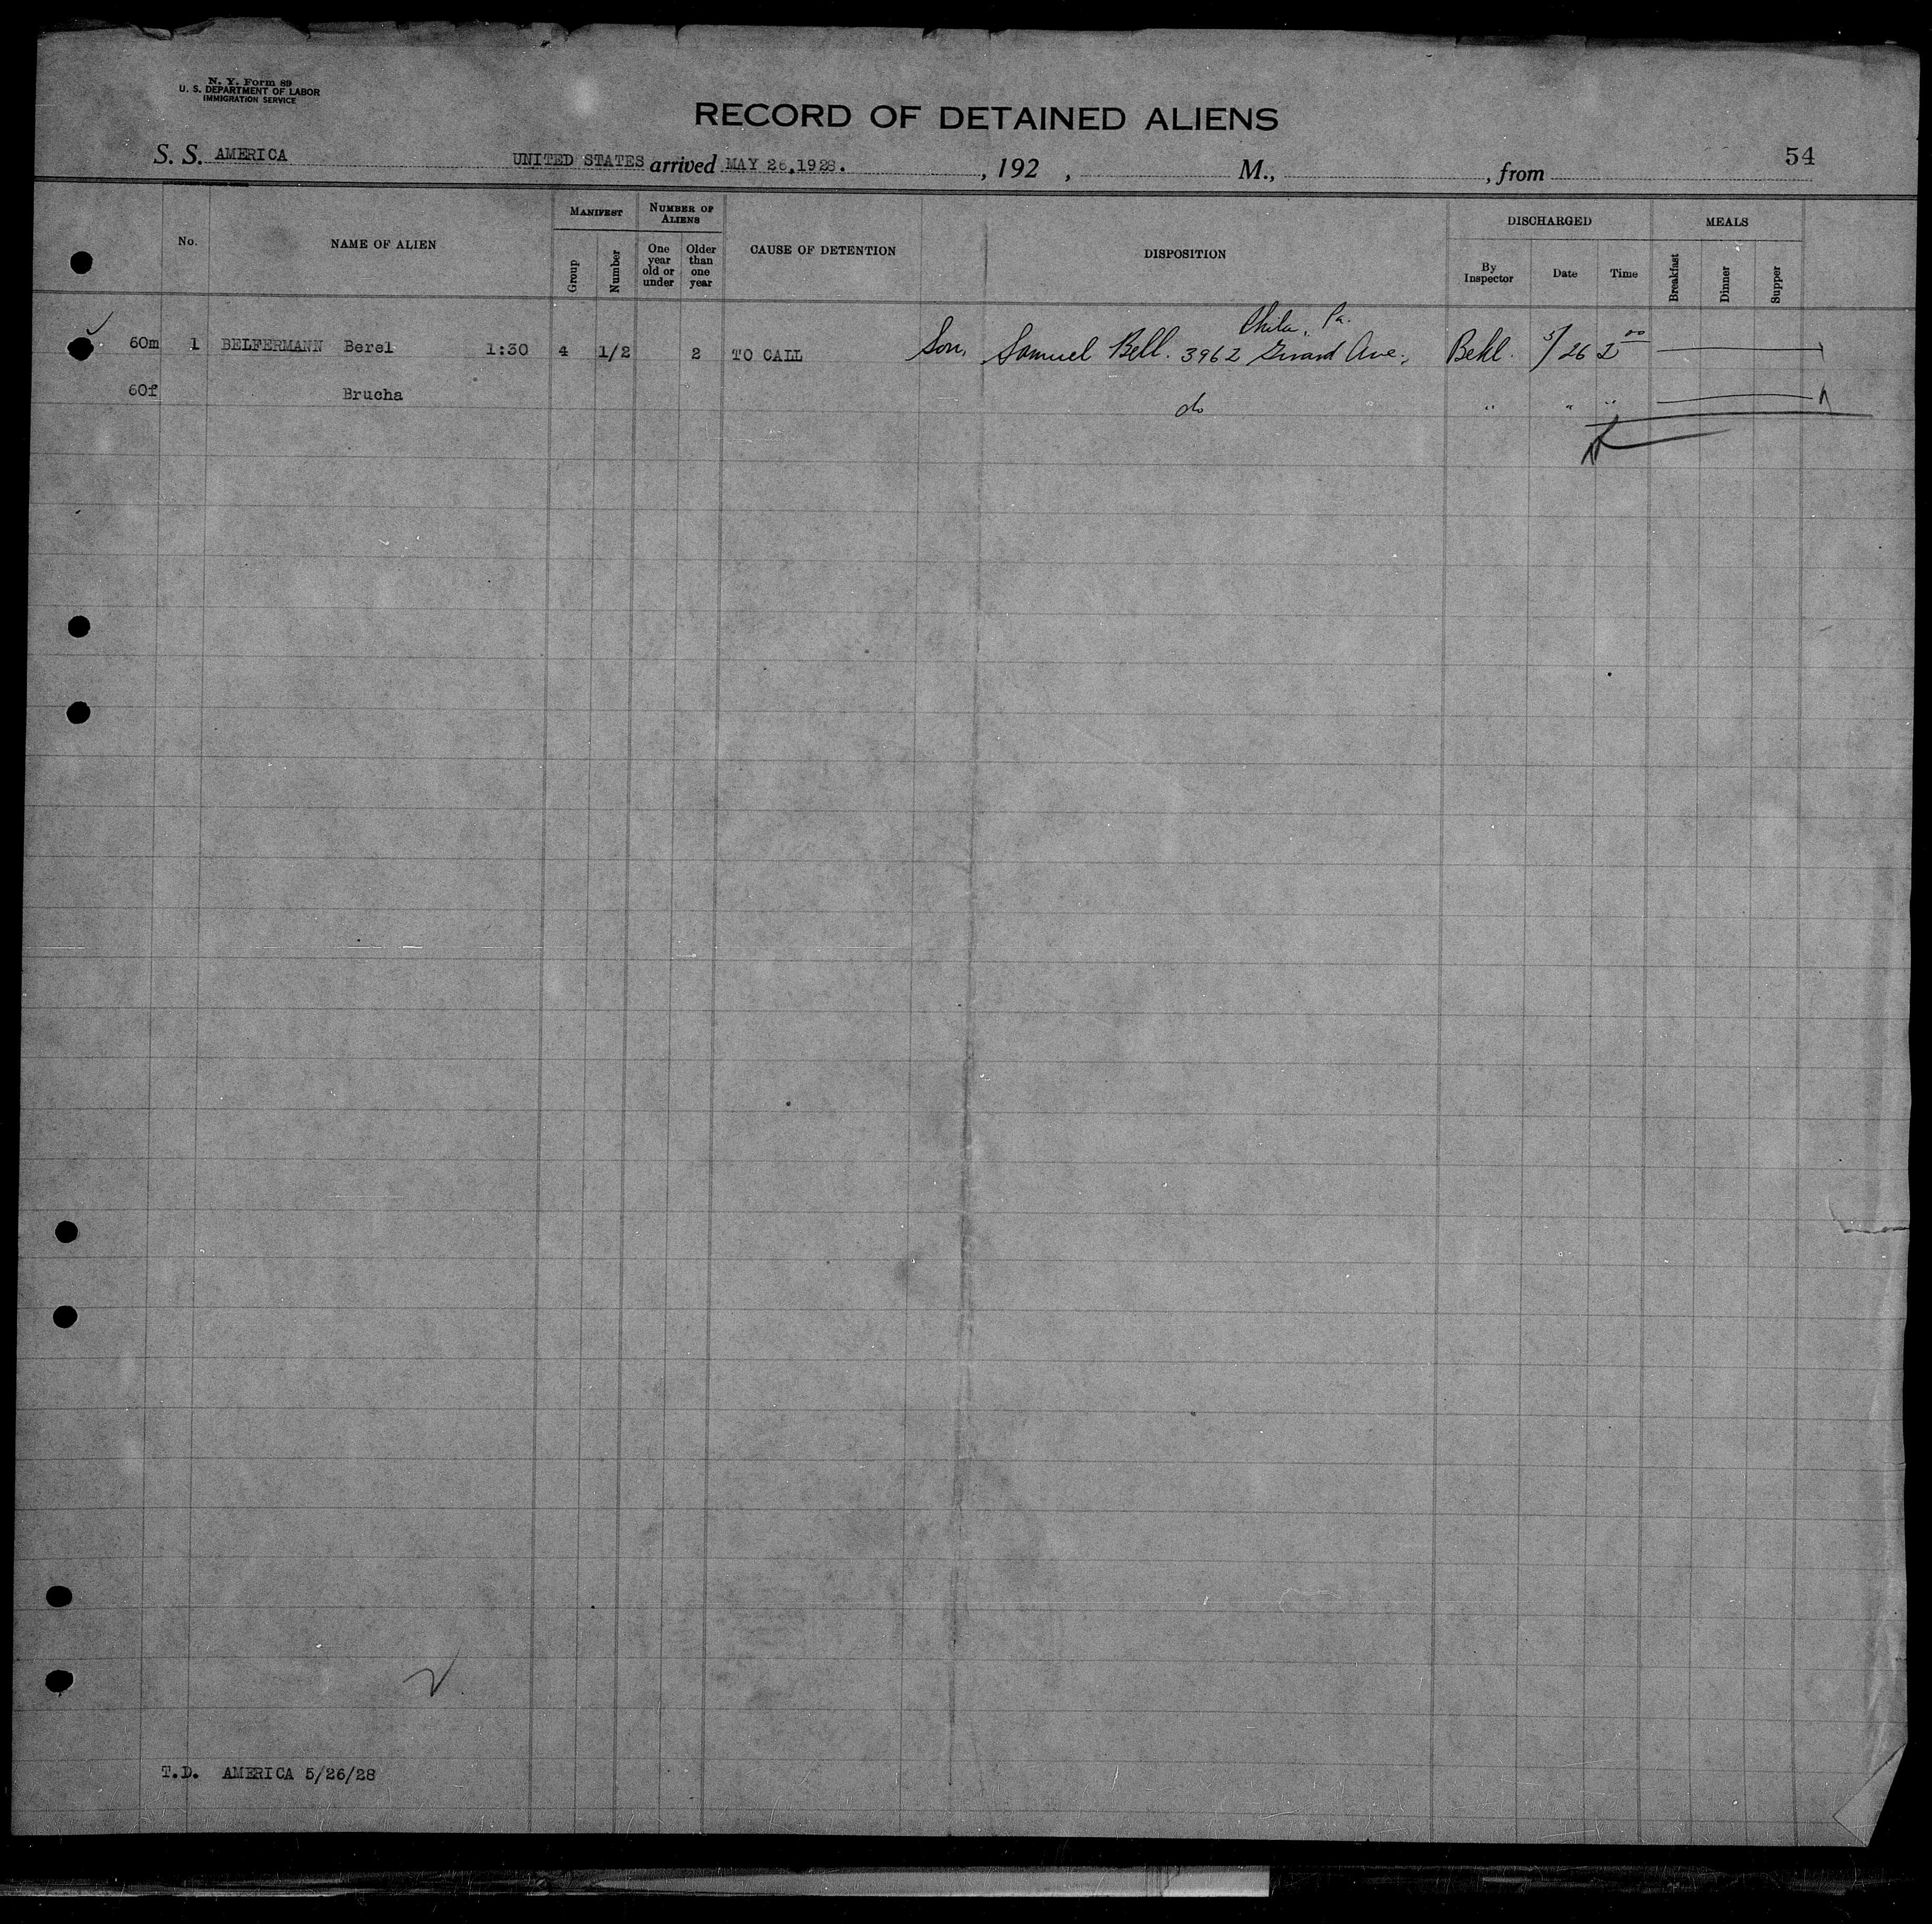 N. Y. Form 89
U. S. DEPARTMENT OF LABOR
IMMIGRATION SERVICE
RECORD OF DETAINED ALIENS
S. S. AMERICA UNITED STATES arrived MAY 26,1928. , 192 , M., , from 54
No. NAME OF ALIEN MANIFEST Group Number NUMBER OF ALIENS One year old or under Older than one year CAUSE OF DETENTION DISPOSITION DISCHARGED By Inspector Date Time MEALS Breakfast Dinner Supper
Phila. Pa.
60m 1 BELFERMANN Berel 1:30 4 1/2 2 TO CALL Son, Samuel Bell. 3962 Girard Ave., Bekl. 5/26 2 00
60f Brucha do " " "
T.D. AMERICA 5/26/28